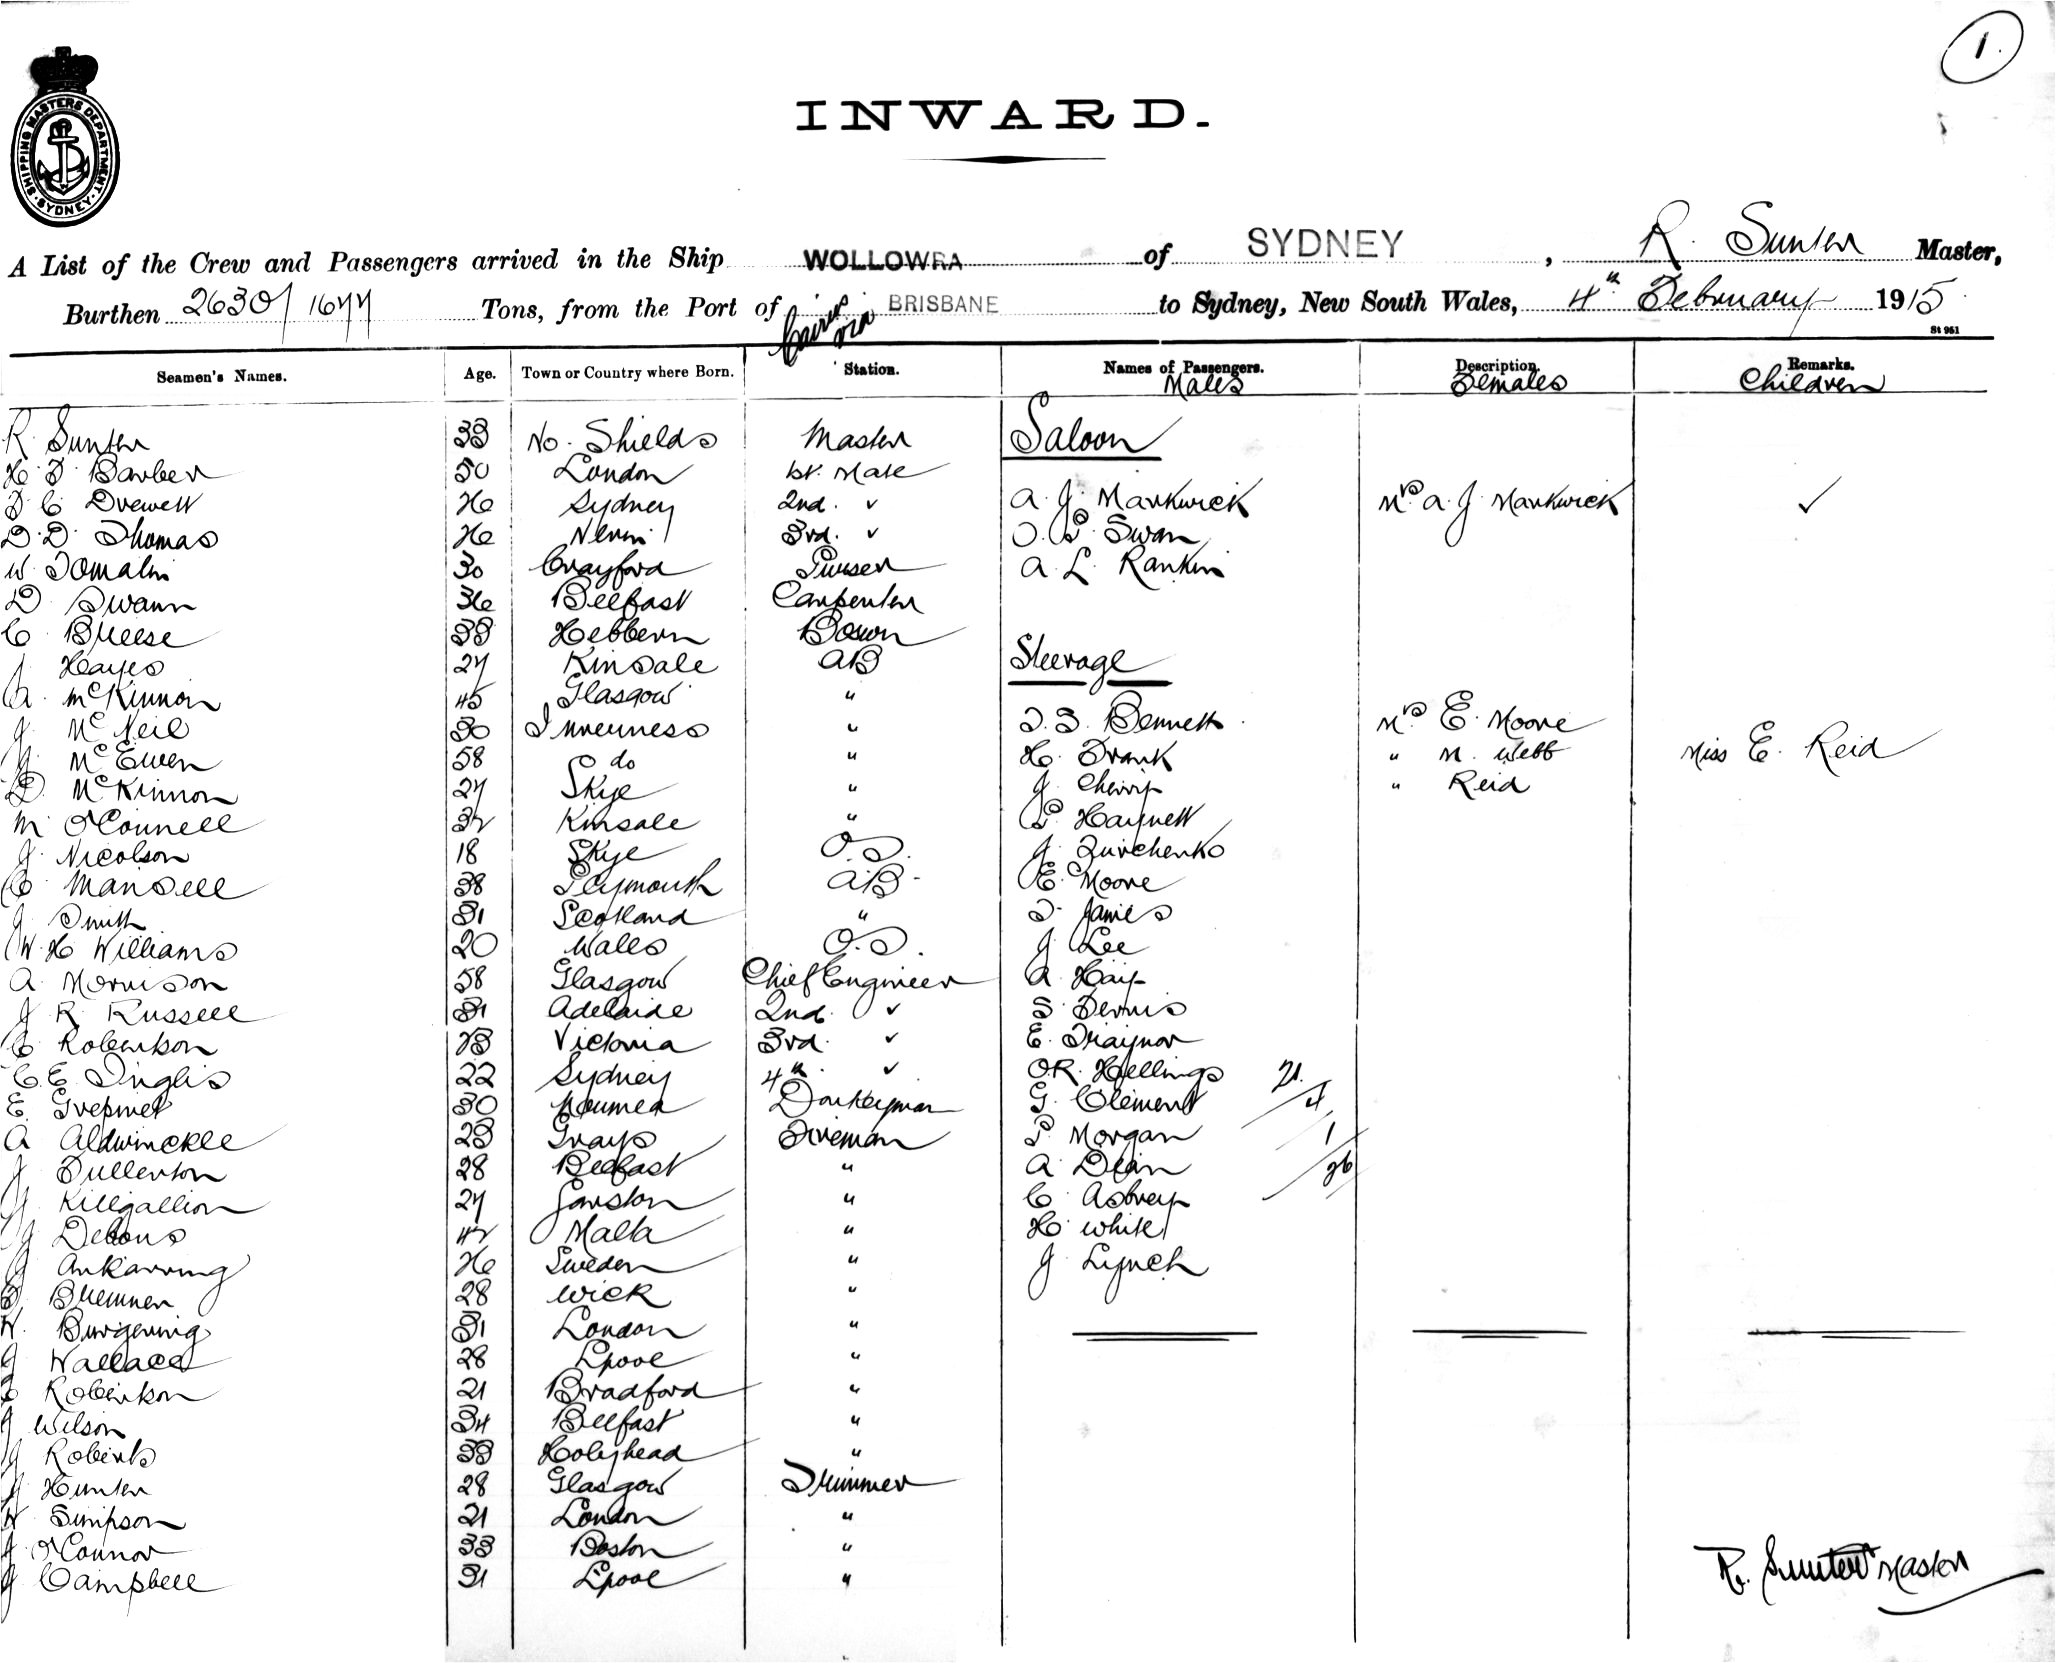 1.
SHIPPING MASTERS DEPARTMENT. SYDNEY
INWARD.
A List of the Crew and Passengers arrived in the Ship WOLLOWRA of SYDNEY, R. Sunter Master,
Burthen 2630/1677 Tons, from the Port of Cairns via BRISBANE to Sydney, New South Wales, 4th February 1915
St 951
Seamen's Names. Age. Town or Country where Born. Station. Names of Passengers. Description. Remarks.
Males Females Children
R. Sunter 33 No. Shields Master Saloon
H. F. Barber 50 London 1st. Mate
F C Drewett 26 Sydney 2nd. " A. J. Markwick Mrs A J Markwick ✓
D. D. Thomas 26 Nevin 3rd. " O. P. Swan
W. Tomalin 30 Crayford Purser A. L. Rankin
D. Swann 36 Belfast Carpenter
C. Breese 33 Hebbern Bosun
J Hayes 27 Kinsale AB Steerage
A. McKinnon 45 Glasgow "
J. McNeil 30 Inverness " T. S. Bennett Mrs E. Moore
J. McEwen 58 do " H. Frank " M. Webb Miss E. Reid
D. McKinnon 27 Skye " J Cherry " Reid
M O'Connell 32 Kinsale " P
J. Nicolson 18 Skye O.S. J Zurchenko
C. Mansell 38 Plymouth AB. E. Moore
J Smith 31 Scotland " T. James
W. H Williams 20 Wales O.S. J Lee
A. Morrison 58 Glasgow Chief Engineer A. Hay
J R Russell 31 Adelaide 2nd. " S Dennis
C Robertson 23 Victoria 3rd. " E. Traynor
C. E. Inglis 22 Sydney 4th. " O.R. Hellings 21
E. 30 Noumea Donkeyman G. Clement / 4
A Aldwinckle 23 Grays Fireman P Morgan 1
J Fullerton 28 Belfast " A. Dean / 26
J. Killgallion 27 Garston " C. Asbrey
J Debono 42 Malta " H. White
J Ankarving 26 Sweden " J Lynch
D. Bremner 28 Wick "
W. Burgering 31 London "
J Wallace 28 Lpool "
C Robertson 21 Bradford "
J Wilson 34 Belfast "
J Roberts 33 Holyhead "
J Hunter 28 Glasgow Trimmer
W Simpson 21 London "
J O'Connor 33 Boston "
J Campbell 31 Lpool "
R. Sunter Master